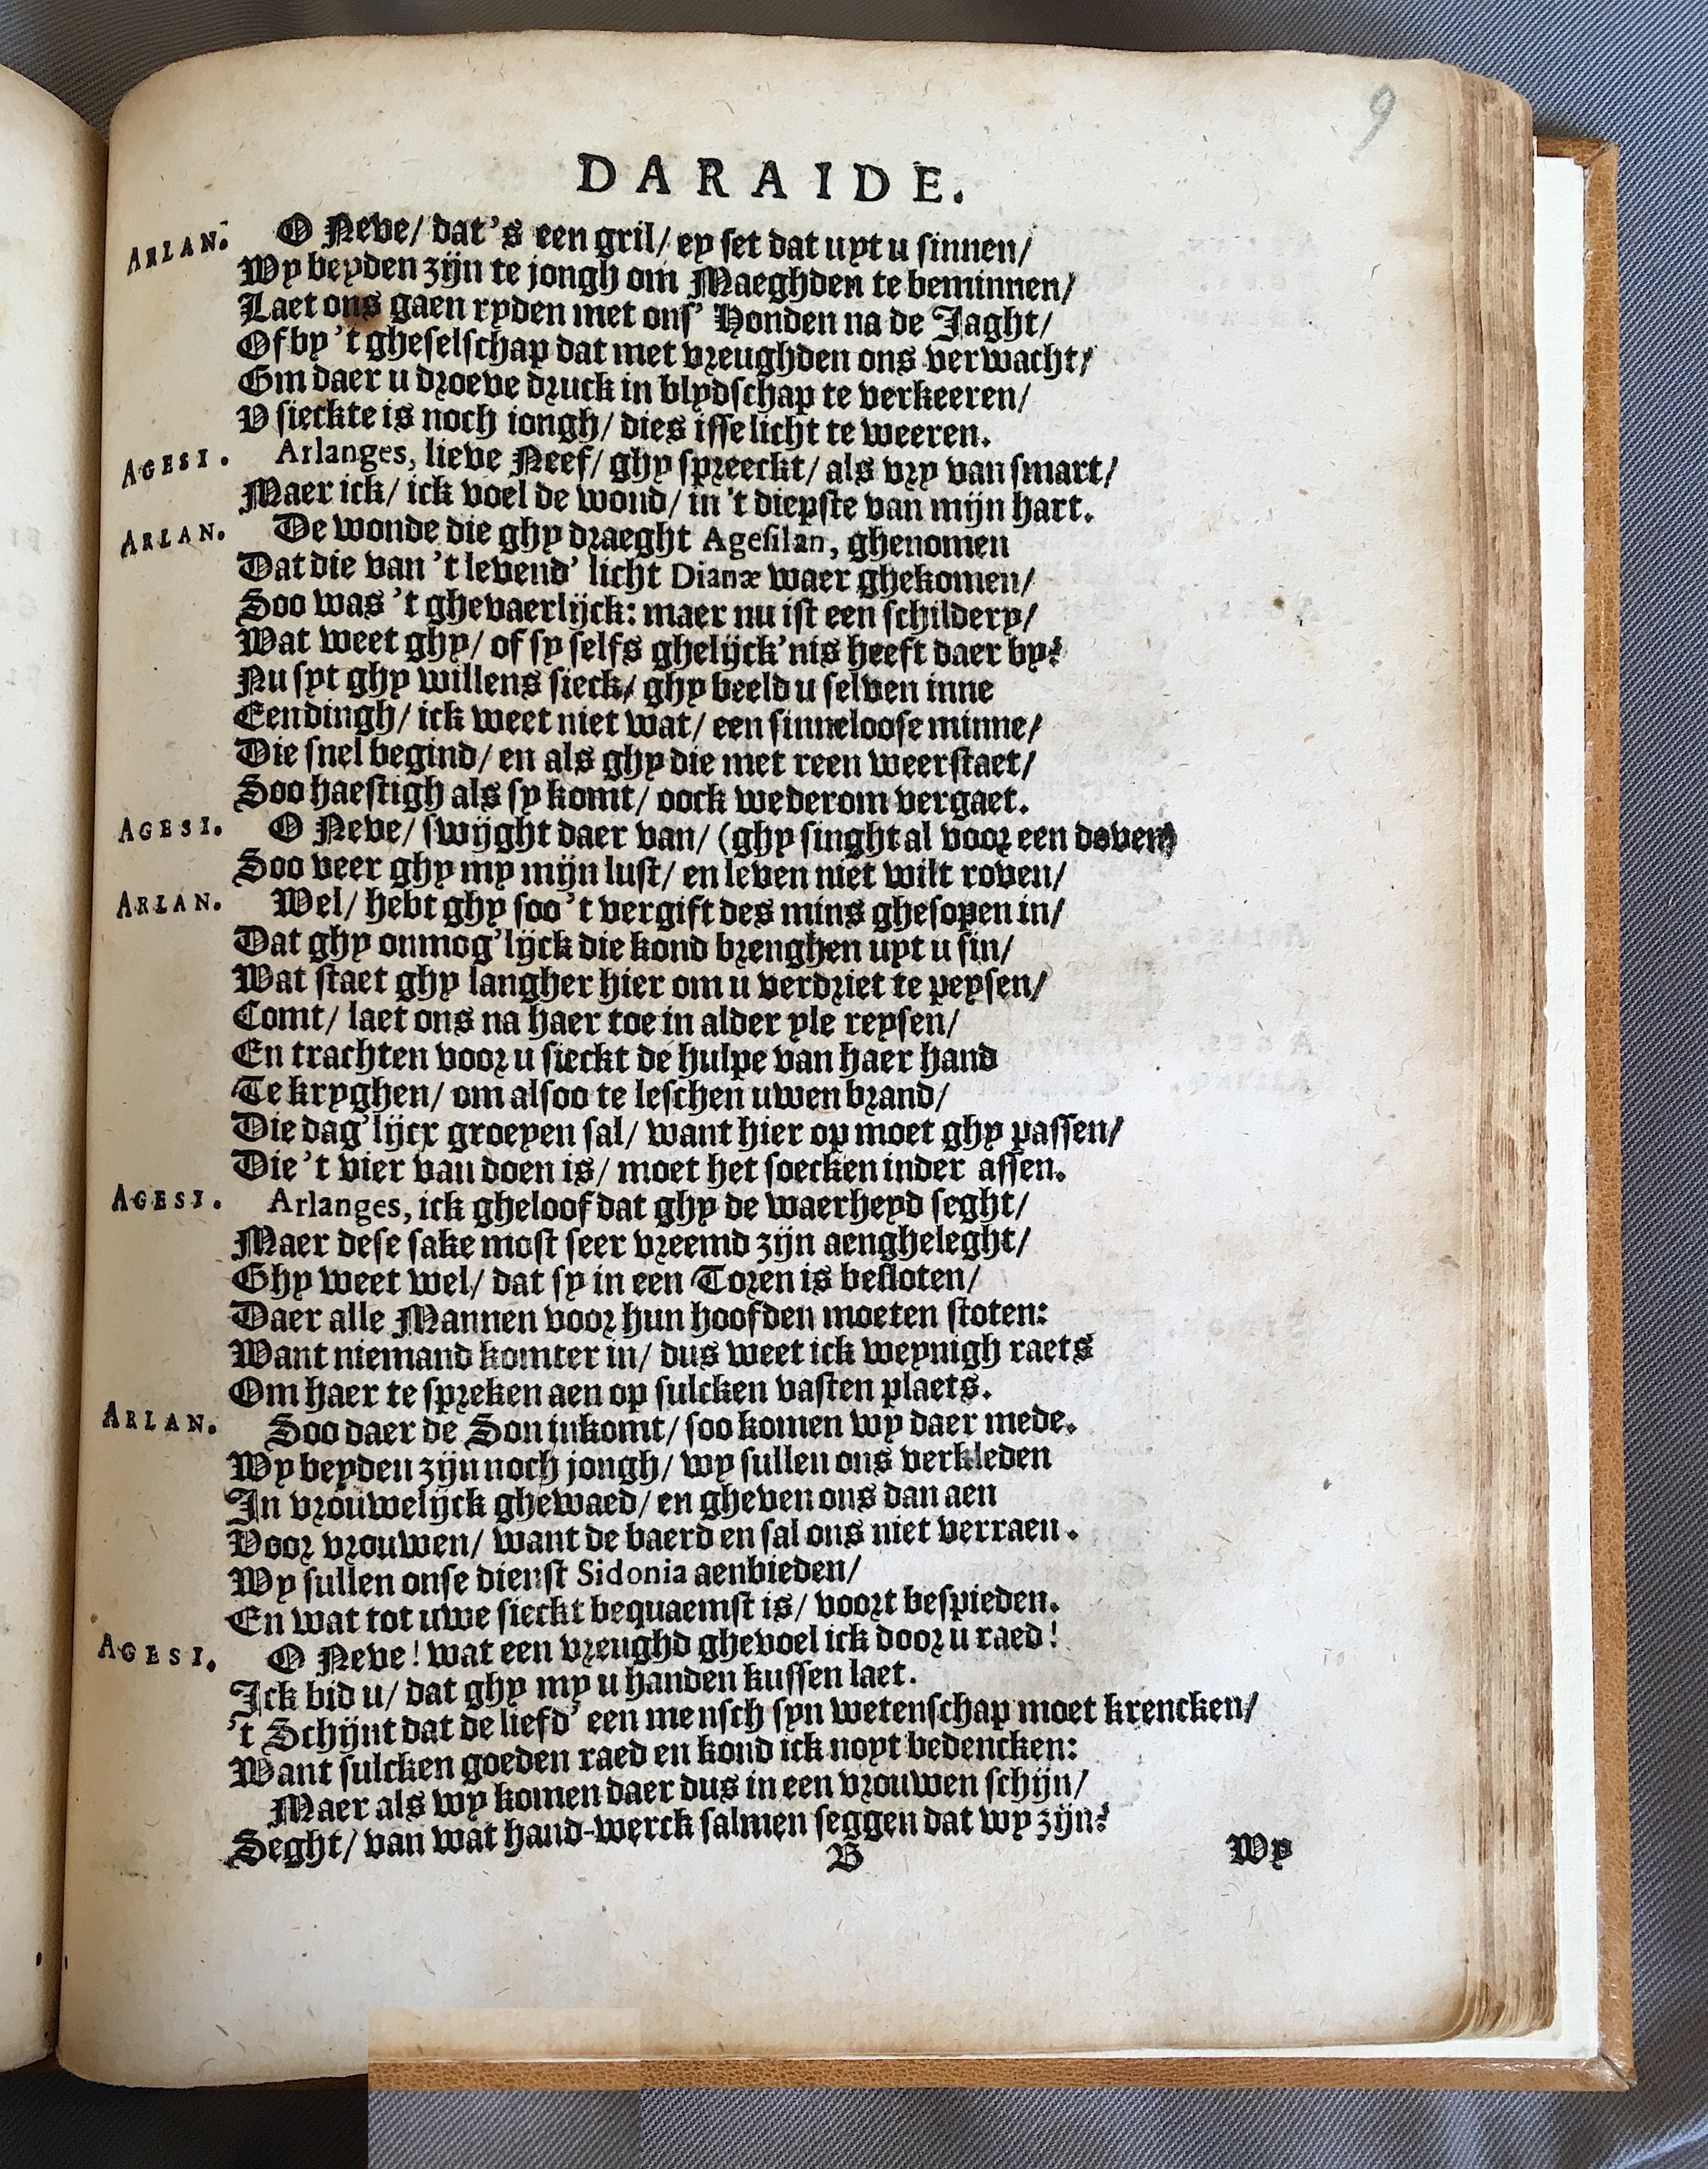 9
DARAIDE.
ARLAN. O Neve/ dat's een gril/ ey set dat uyt u sinnen/
Wy beyden zijn te jongh om Maeghden te beminnen/
Laet ons gaen ryden met ons' Honden na de Jaght/
Of by 't gheselschap dat met vreughden ons verwacht/
Om daer u droeve druck in blydschap te verkeeren/
V sieckte is noch iongh/ dies isse licht te weeren.
AGESI. Arlanges, lieve Neef/ ghy spreeckt/ als vry van smart/
Maer ick/ ick voel de wond/ in 't diepste van mijn hart.
ARLAN. De wonde die ghy draeght Agesilan, ghenomen
Dat die van 't levend' licht Dianæ waer ghekomen/
Soo was 't ghevaerlijck: maer nu ist een schildery/
Wat weet ghy/ of sy selfs ghelijck'nis heeft daer by?
Nu syt ghy willens sieck/ ghy beeld u selven inne
Een dingh/ ick weet niet wat/ een sinneloose minne/
Die snel begind/ en als ghy die met reen weerstaet/
Soo haestigh als sy komt/ oock wederom vergaet.
AGESI. O Neve/ swijght daer van/ (ghy singht al voor een doven)
Soo veer ghy my mijn lust/ en leven niet wilt roven/
ARLAN. Wel/ hebt ghy soo 't vergift des mins ghesopen in/
Dat ghy onmog'lijck die kond brenghen uyt u sin/
Wat staet ghy langher hier om u verdriet te peysen/
Comt/ laet ons na haer toe in alder yle reysen/
En trachten voor u sieckt de hulpe van haer hand
Te kryghen/ om alsoo te leschen uwen brand/
Die dag'lijcx groeyen sal/ want hier op moet ghy passen/
Die 't vier van doen is/ moet het soecken inder assen.
AGESI. Arlanges, ick gheloof dat ghy de waerheyd seght/
Maer dese sake most seer vreemd zijn aengheleght/
Ghy weet wel/ dat sy in een Toren is besloten/
Daer alle Mannen voor hun hoofden moeten stoten:
Want niemand komter in/ dus weet ick weynigh raets
Om haer te spreken aen op sulcken vasten plaets.
ARLAN. Soo daer de Son inkomt/ soo komen wy daer mede.
Wy beyden zijn noch jongh/ wy sullen ons verkleden
In vrouwelijck ghewaed/ en gheven ons dan aen
Voor vrouwen/ want de baerd en sal ons niet verraen.
Wy sullen onse dienst Sidonia aenbieden/
En wat tot uwe sieckt bequaemst is/ voort bespieden.
AGESI. O Neve! wat een vreughd ghevoel ick door u raed!
Ick bid u/ dat ghy my u handen kussen laet.
't Schijnt dat de liefd' een mensch syn wetenschap moet krencken/
Want sulcken goeden raed en kond ick noyt bedencken:
Maer als wy komen daer dus in een vrouwen schijn/
Seght/ van wat hand-werck salmen seggen dat wy zijn?
B Wy